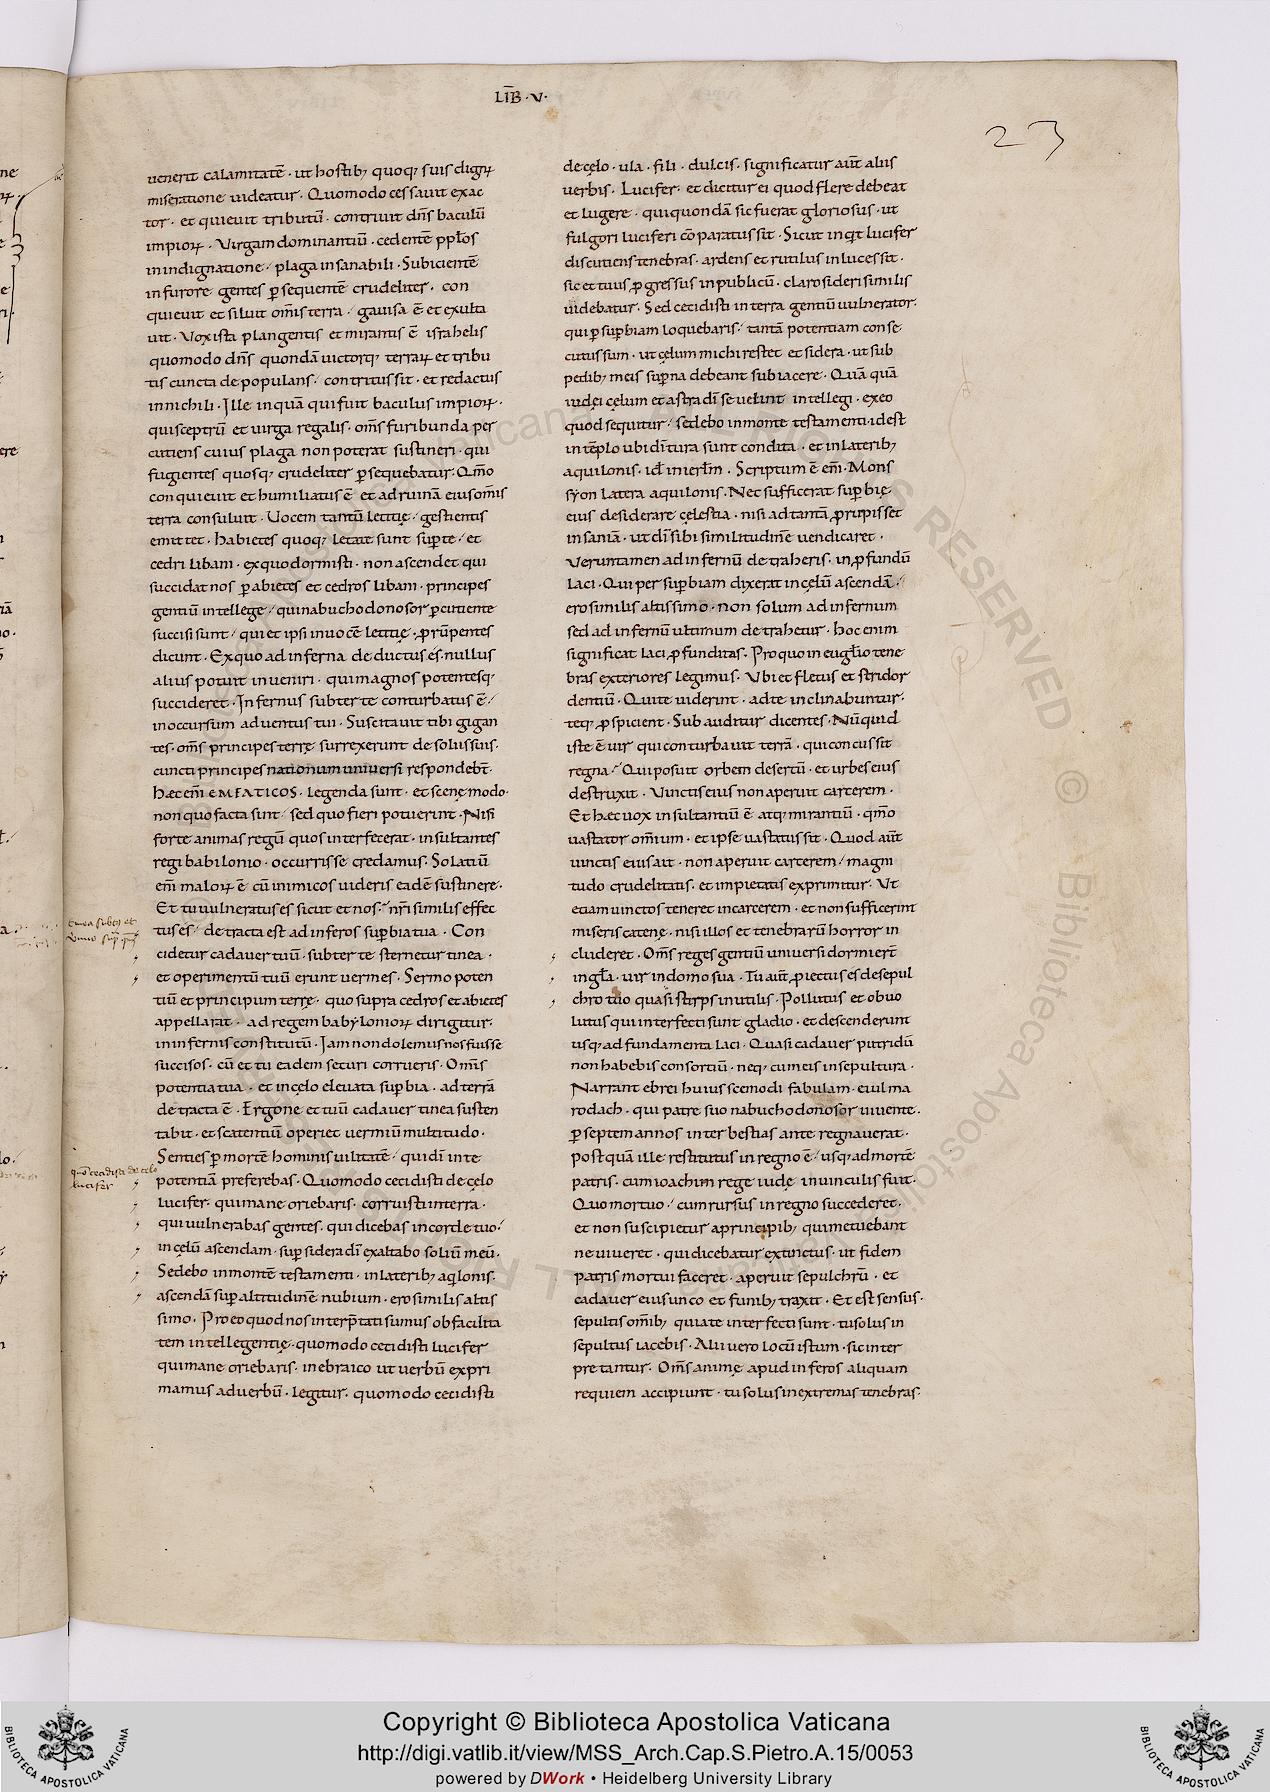 LIB̄ · V ·
23
uenerit calamitatē · ut hostib; quoq; suis dignꝝ
miseratione uideatur · Quomodo cessauit exac
tor · et quieuit tributū · contriuit dn̄s baculū
impioꝝ · Virgam dominantiū · cedentē pp̄los
in indignatione / plaga insanabili · Subicientē
in furore gentes ꝑsequentē crudeliter · con
quieuit et siluit om̄is terra / gauisa ē et exulta
uit · Vox ista plangentis et mirantis ē israhelis
quomodo dn̄s quondā uictorq; terraꝝ et tribu
tis cuncta depopulans / contritus sit · et redactus
in nichili · Ille inquā qui fuit baculus impioꝝ ·
qui sceptrū et uirga regalis · om̄s furibunda per
cutiens cuius plaga non poterat sustineri · qui
fugientes quosq; crudeliter ꝑsequebatur · Qm̄o
conquieuit et humiliatus ē et ad ruinā eius om̄is
terra consuluit · Vocem tantū letitię / gestientis
emittet · habietes quoq; letati sunt suꝑ te / et
cedri libani · ex quo dormisti · non ascendet qui
succidat nos ꝑ abietes et cedros libani · principes
gentiū intellege / qui nabuchodonosor ꝑcutiente
succisi sunt / qui et ipsi in uocē letitię ꝓrūpentes
dicunt · Ex quo ad inferna deductus es · nullus
alius potuit inueniri · qui magnos potentesq;
succideret · Infernus subter te conturbatus ē /
in occursum aduentus tui · Suscitauit tibi gigan
tes · om̄s principes terrę surrexerunt de solus suis ·
cuncti principes nationum uniuersi respondebt̄ ·
hæc em̄ EMFATICOS · legenda sunt · et scenę modo ·
non quo facta sint / sed quo fieri potuerint · Nisi
forte animas regū quos interfecerat · insultantes
regi babilonio · occurrisse credamus · Solatiū
em̄ maloꝝ ē cū inimicos uideris eadē sustinere ·
Et tu uulneratus es sicut et nos / nr̄i similis effec
tus es / detracta est ad inferos suꝑbia tua · Con
cidetur cadauer tuū · subter te sternetur tinea ·
et operimentū tuū erunt uermes · Sermo poten
tiū et principum terrę · quo supra cedros et abietes
appellarat · ad regem babylonioꝝ dirigitur ·
in infernis constitutū · Iam non dolemus nos fuisse
succisos · cū et tu eadem securi corrueris · Om̄s
potentia tua · et in cęlo eleuata suꝑbia · ad terrā
detracta ē · Ergone et tuū cadauer tinea susten
tabit · et scatentiū operiet uermiū multitudo ·
Senties ꝑ mortē hominis uilitatē / qui dī in te
potentiā preferebas · Quomodo cecidisti de cęlo
lucifer · qui mane oriebaris · corruisti in terra ·
qui uulnerabas gentes · qui dicebas in corde tuo /
in cęlū ascendam · suꝑ sidera dī exaltabo soliū meū ·
Sedebo in monte testamenti · in laterib; aq̇lonis ·
ascendā suꝑ altitudinē nubium · ero similis altis
simo · Pro eo quod nos interp̄tati sumus ob facilita
tem intellegentię · quomodo cecidisti lucifer
qui mane oriebaris · in ebraico ut uerbū expri
mamus ad uerbū · legitur · quomodo cecidisti
quō cecidisti de celo
lucifer
de cęlo · ula · fili · dulcis · significatur aut̄ aliis
uerbis · Lucifer · et dicitur ei quod flere debeat
et lugere · qui quondā sic fuerat gloriosus · ut
fulgori luciferi cōparatus sit · Sicut inquit lucifer
discutiens tenebras · ardens et rutilus inluces sit ·
sic et tuus ꝓgressus in publicū · claro sideri similis
uidebatur · Sed cecidisti in terra gentiū uulnerator ·
qui ꝑ suꝑbiam loquebaris / tantā potentiam conse
cutus sum · ut cęlum michi restet et sidera · ut sub
pedib; meis suꝑna debeant subiacere · Quā quā
iudęi cęlum et astra dī se uelint intellegi · ex eo
quod sequitur / sedebo in monte testamenti · idest
in tēplo ubi dī iura sunt condita · et in laterib;
aquilonis · id̄ in ierl̄m · Scriptum ē em̄ · Mons
syon latera aquilonis · Nec sufficerat suꝑbię
eius desiderare cęlestia · nisi ad tantā ꝓrupisset
insaniā · ut dī sibi similitudinē uendicaret ·
Veruntamen ad infernū detraheris · in ꝓfundū
laci · Qui per suꝑbiam dixerat in cęlū ascendā /
ero similis altissimo · non solum ad infernum
sed ad infernū ultimum detrahetur · hoc enim
significat laci ꝓfunditas · Pro quo in eugl̄io tene
bras exteriores legimus · Vbi et fletus et stridor
dentiū · Qui te uiderint · ad te inclinabuntur ·
teq; ꝓspicient · Sub auditur dicentes · Nūquid
iste ē uir qui conturbauit terrā · qui concussit
regna / Qui posuit orbem desertū · et urbes eius
destruxit · Vinctis eius non aperuit carcerem ·
Et haec uox insultantiū ē atq; mirantiū · qm̄o
uastator om̄ium · et ipse uastatus sit · Quod aut̄
uinctis eius ait · non aperuit carcerem / magni
tudo crudelitatis · et impietatis exprimitur · Vt
etiam uinctos teneret in carcerem · et non sufficerint
miseris catenę · nisi illos et tenebrarū horror in
cluderet · Om̄s reges gentiū uniuersi dormiert̄
in gl̄a · uir in domo sua · Tu aut̄ ꝓiectus es de sepul
chro tuo quasi stirps inutilis · Pollutus et obuo
lutus qui interfecti sunt gladio · et descenderunt
usq; ad fundamenta laci · Quasi cadauer putridū
non habebis consortiū · neq; cum eis in sepultura ·
Narrant ebrei huiuscemodi fabulam · euilma
rodach · qui patre suo nabuchodonosor uiuente ·
ꝑ septem annos inter bestias ante regnauerat ·
postquā ille restitutus in regno ē / usq; ad mortē
patris · cum ioachim rege iudę in uinculis fuit ·
Quo mortuo / cum rursus in regno succederet ·
et non suscipietur a principib; qui metuebant
ne uiueret · qui dicebatur extinctus · ut fidem
patris mortui faceret · aperuit sepulchrū · et
cadauer eius unco et funib; traxit · Et est sensus ·
sepultis om̄ib; qui a te interfecti sunt · tu solus in
sepultus iacebis · Alii uero locū istum · sic inter
pretantur · Om̄s animę apud inferos aliquam
requiem accipiunt · tu solus in extremas tenebras
Copyright © Biblioteca Apostolica Vaticana
http://digi.vatlib.it/view/MSS_Arch.Cap.S.Pietro.A.15/0053
powered by DWork • Heidelberg University Library